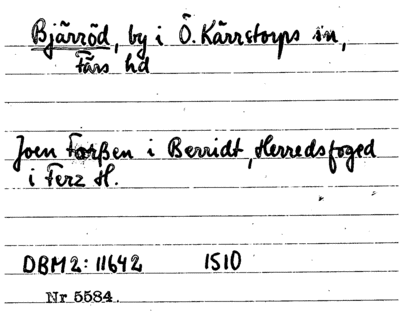 Bjärröd, by i Ö. Kärrstorps sn,
Färs hd
Joen Farßen i Berridt, Herredsfoged
i Ferz H.
DBM2: 11642 1510
Nr 5584.